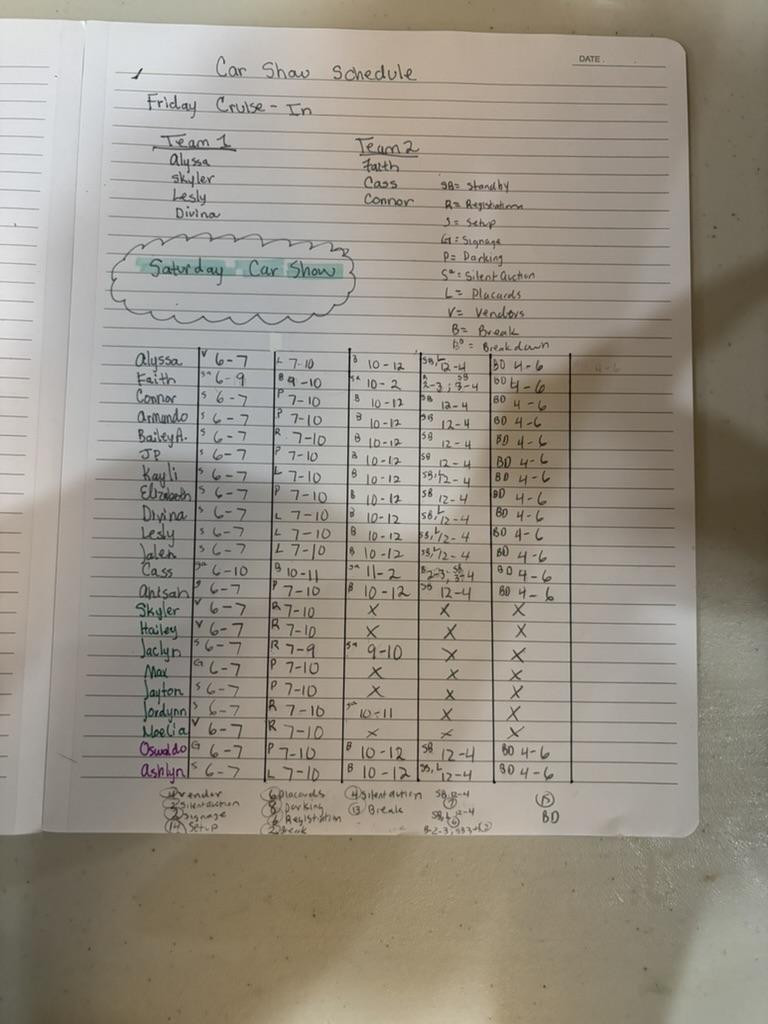 DATE.
Car Show Schedule
Friday Cruise-In
Team 1 Team 2
Alyssa Faith
Skyler Cass SB= Standby
Lesly Connor R= Registration
Divina S= Setup
G= Signage
P= Parking
Sa= Silent Auction
Saturday Car Show
L= Placards
V= Vendors
B= Break
BD= Breakdown
Alyssa V 6-7 L 7-10 B 10-12 SB,L 12-4 BD 4-6
Faith Sa 6-9 B 9-10 Sa 10-2 2-3; SB 3-4 BD 4-6
Connor S 6-7 P 7-10 B 10-12 SB 12-4 BD 4-6
Armondo S 6-7 P 7-10 B 10-12 SB 12-4 BD 4-6
Bailey A. S 6-7 R 7-10 B 10-12 SB 12-4 BD 4-6
JP S 6-7 P 7-10 B 10-12 SB 12-4 BD 4-6
Kayli S 6-7 L 7-10 B 10-12 SB,L 12-4 BD 4-6
Elizabeth S 6-7 P 7-10 B 10-12 SB 12-4 BD 4-6
Divina S 6-7 L 7-10 B 10-12 SB,L 12-4 BD 4-6
Lesly S 6-7 L 7-10 B 10-12 SB,L 12-4 BD 4-6
Jalen S 6-7 L 7-10 B 10-12 SB,L 12-4 BD 4-6
Cass Sa 6-10 B 10-11 Sa 11-2 B 2-3; SB 3-4 BD 4-6
S 6-7 P 7-10 B 10-12 SB 12-4 BD 4-6
Skyler V 6-7 R 7-10 X X X
Hailey V 6-7 R 7-10 X X X
Jaclyn S 6-7 R 7-9 Sa 9-10 X X
Max G 6-7 P 7-10 X X X
Jayton S 6-7 P 7-10 X X X
Jordynn S 6-7 R 7-10 Sa 10-11 X X
Noelia V 6-7 R 7-10 X X X
Oswaldo G 6-7 P 7-10 B 10-12 SB 12-4 BD 4-6
Ashlyn S 6-7 L 7-10 B 10-12 SB,L 12-4 BD 4-6
4 vendor 6 Placards 4 Silent aution SB 12-4 15
2 Silent auction 8 Parking 13 Break 7 BD
2 Signage 6 Registration SB,L 12-4
14 Setup 2 Break 6
B 2-3; SB 3-4 2